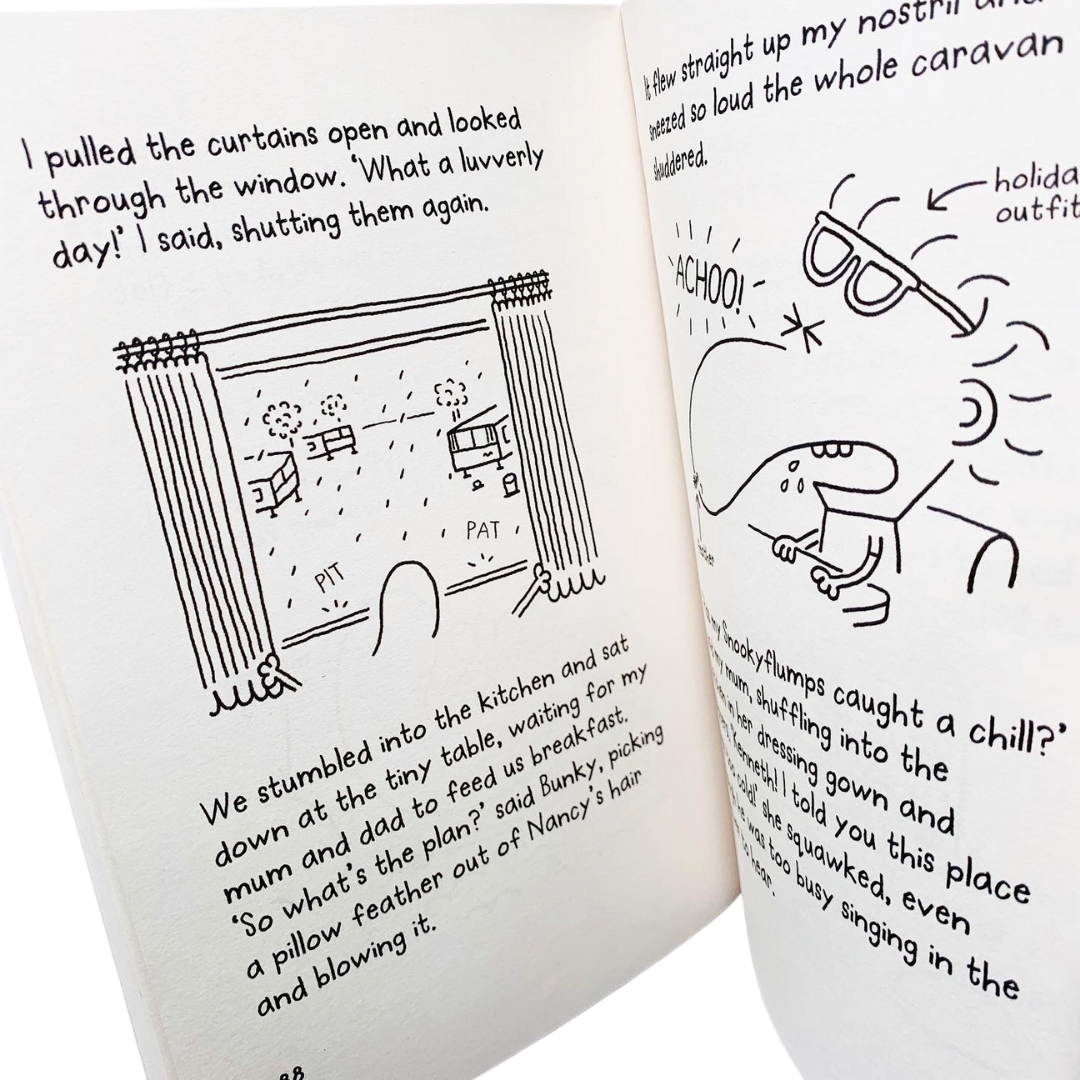 I pulled the curtains open and looked
through the window. ‘What a luvverly
day!’ I said, shutting them again.
PIT
PAT
We stumbled into the kitchen and sat
down at the tiny table, waiting for my
mum and dad to feed us breakfast.
‘So what’s the plan?’ said Bunky, picking
a pillow feather out of Nancy’s hair
and blowing it.
88
It flew straight up my nostril and
sneezed so loud the whole caravan
shuddered.
holida
outfit
ACHOO!
my Snookyflumps caught a chill?’
my mum, shuffling into the
in her dressing gown and
‘Kenneth! I told you this place
cold!’ she squawked, even
he was too busy singing in the
to hear.